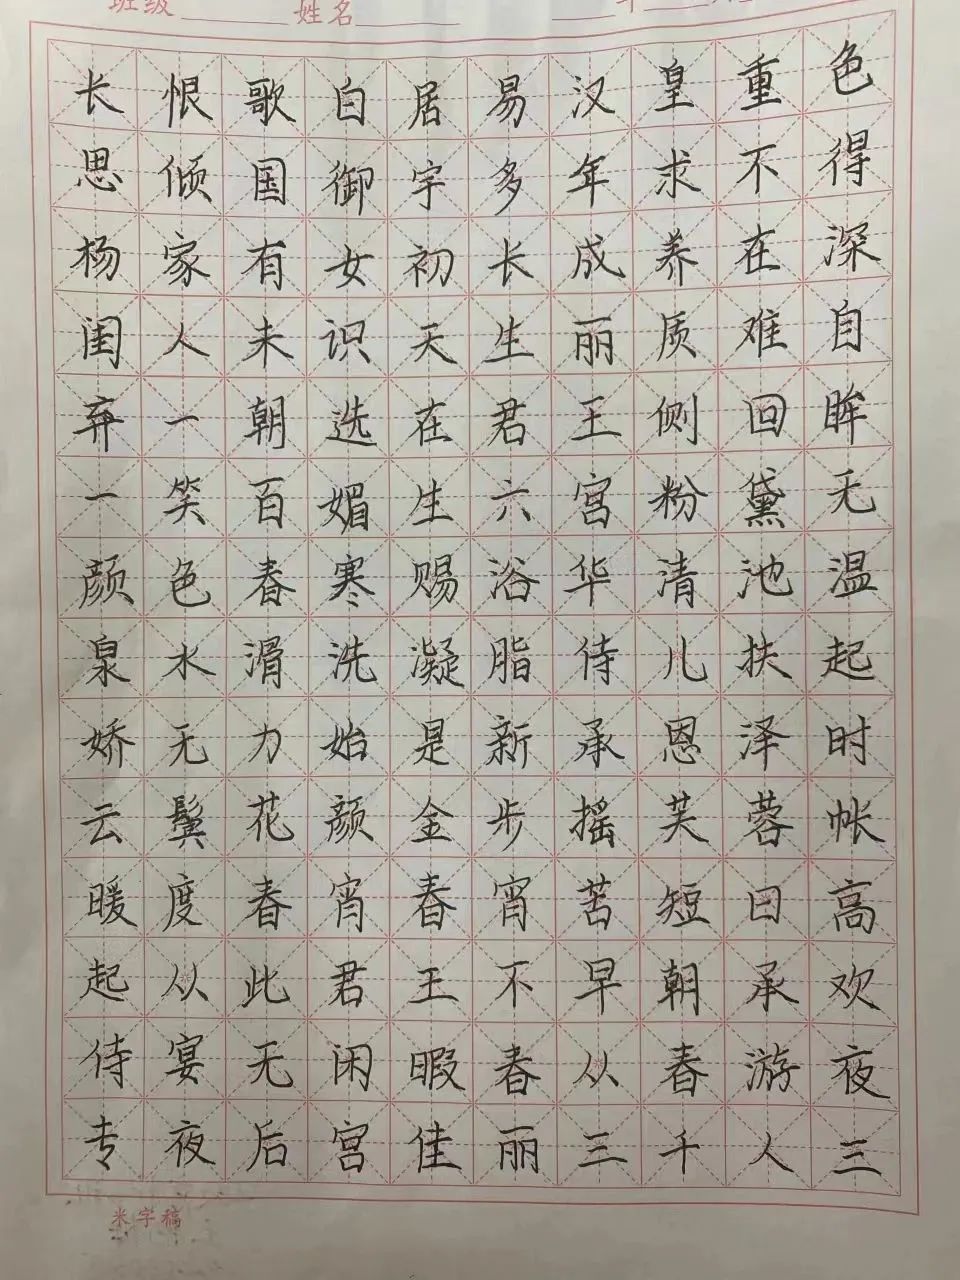 班级 姓名
长恨歌白居易汉皇重色
思倾国御宇多年求不得
杨家有女初长成养在深
闺人未识天生丽质难自
弃一朝选在君王侧回眸
一笑百媚生六宫粉黛无
颜色春寒赐浴华清池温
泉水滑洗凝脂侍儿扶起
娇无力始是新承恩泽时
云鬓花颜金步摇芙蓉帐
暖度春宵春宵苦短日高
起从此君王不早朝承欢
侍宴无闲暇春从春游夜
专夜后宫佳丽三千人三
米字稿